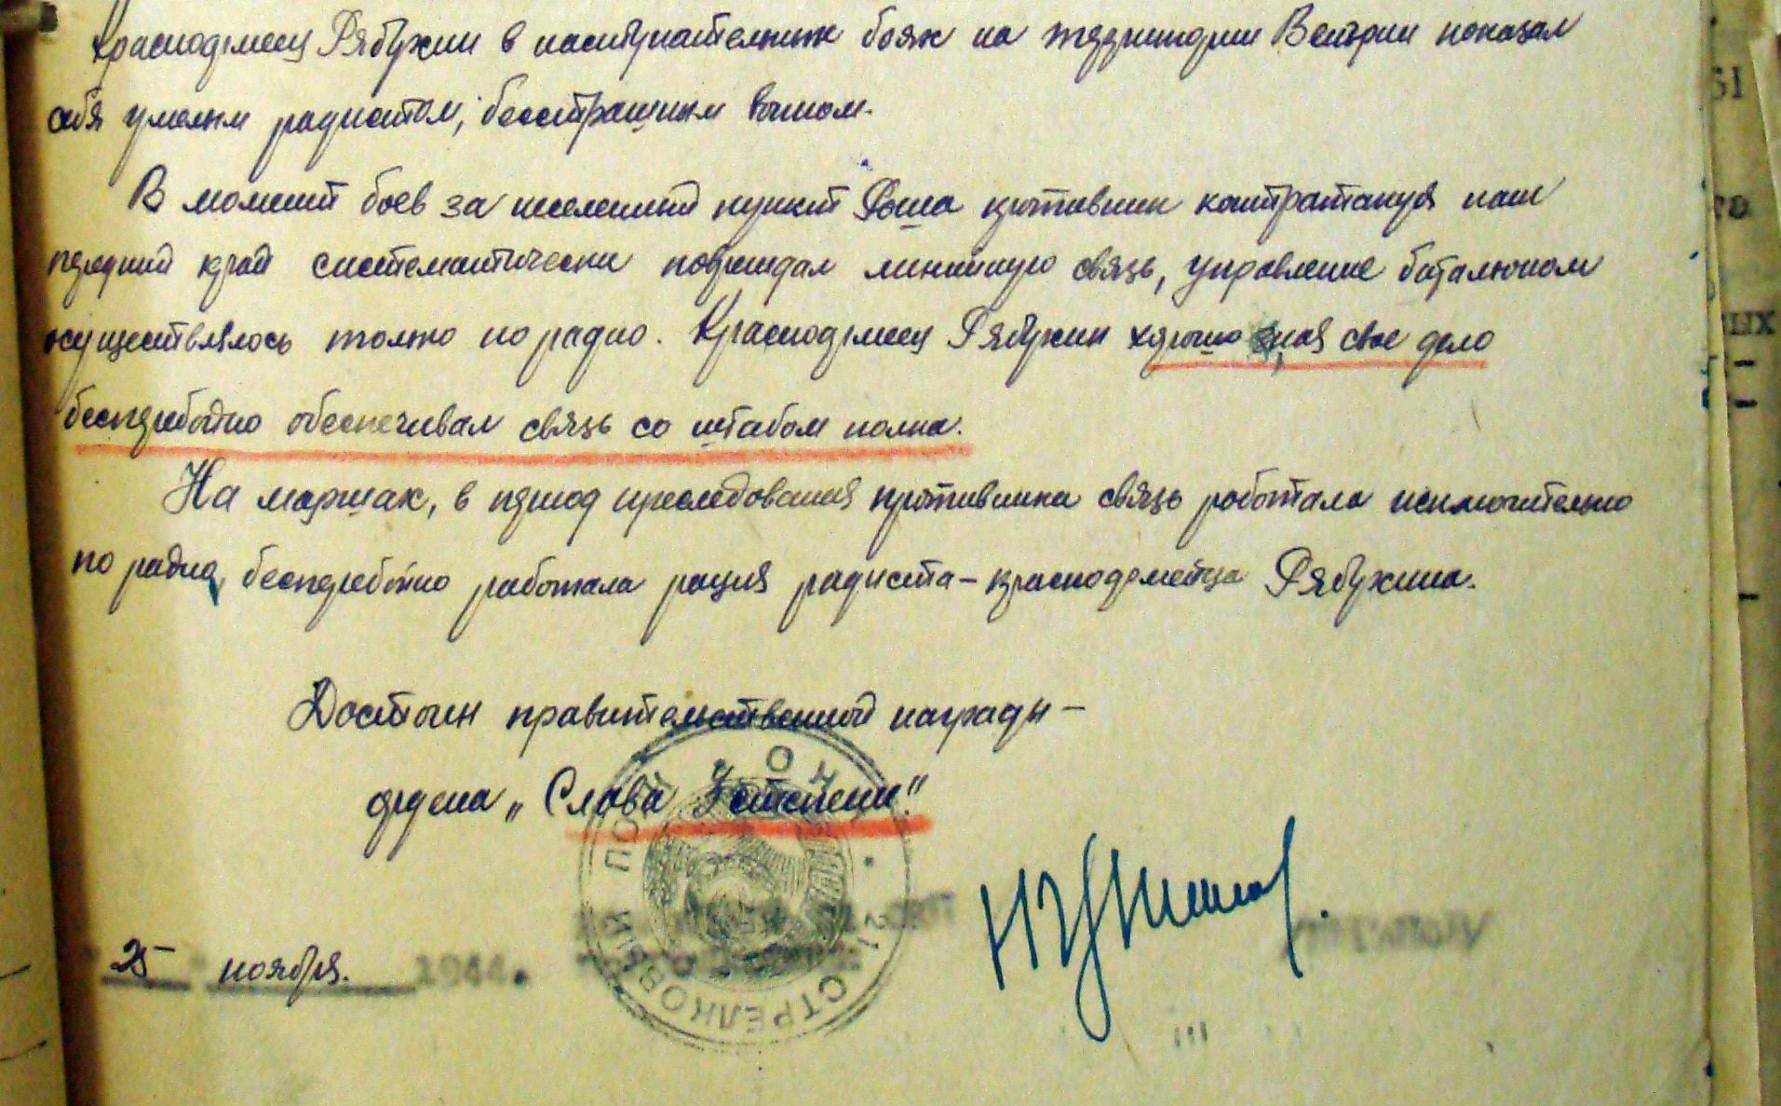 Красноармеец Рябухин в наступательных боях на территории Венгрии показал
себя умелым радистом, бесстрашным воином.
В момент боев за населенный пункт противник контратакуя наш
передний край систематически повреждал линейную связь, управление баталионом
осуществлялось только по радио. Красноармеец Рябухин хорошо зная свое дело
бесперебойно обеспечивал связь со штабом полка.
На маршах, в период преследования противника связь работала исключительно
по радио, бесперебойно работала рация радиста – красноармейца Рябухина.
Достоин правительственной награды –
ордена „Слава степени".
25 ноября. 1944.
21 СТРЕЛКОВЫЙ ПОЛК
51
та
ных